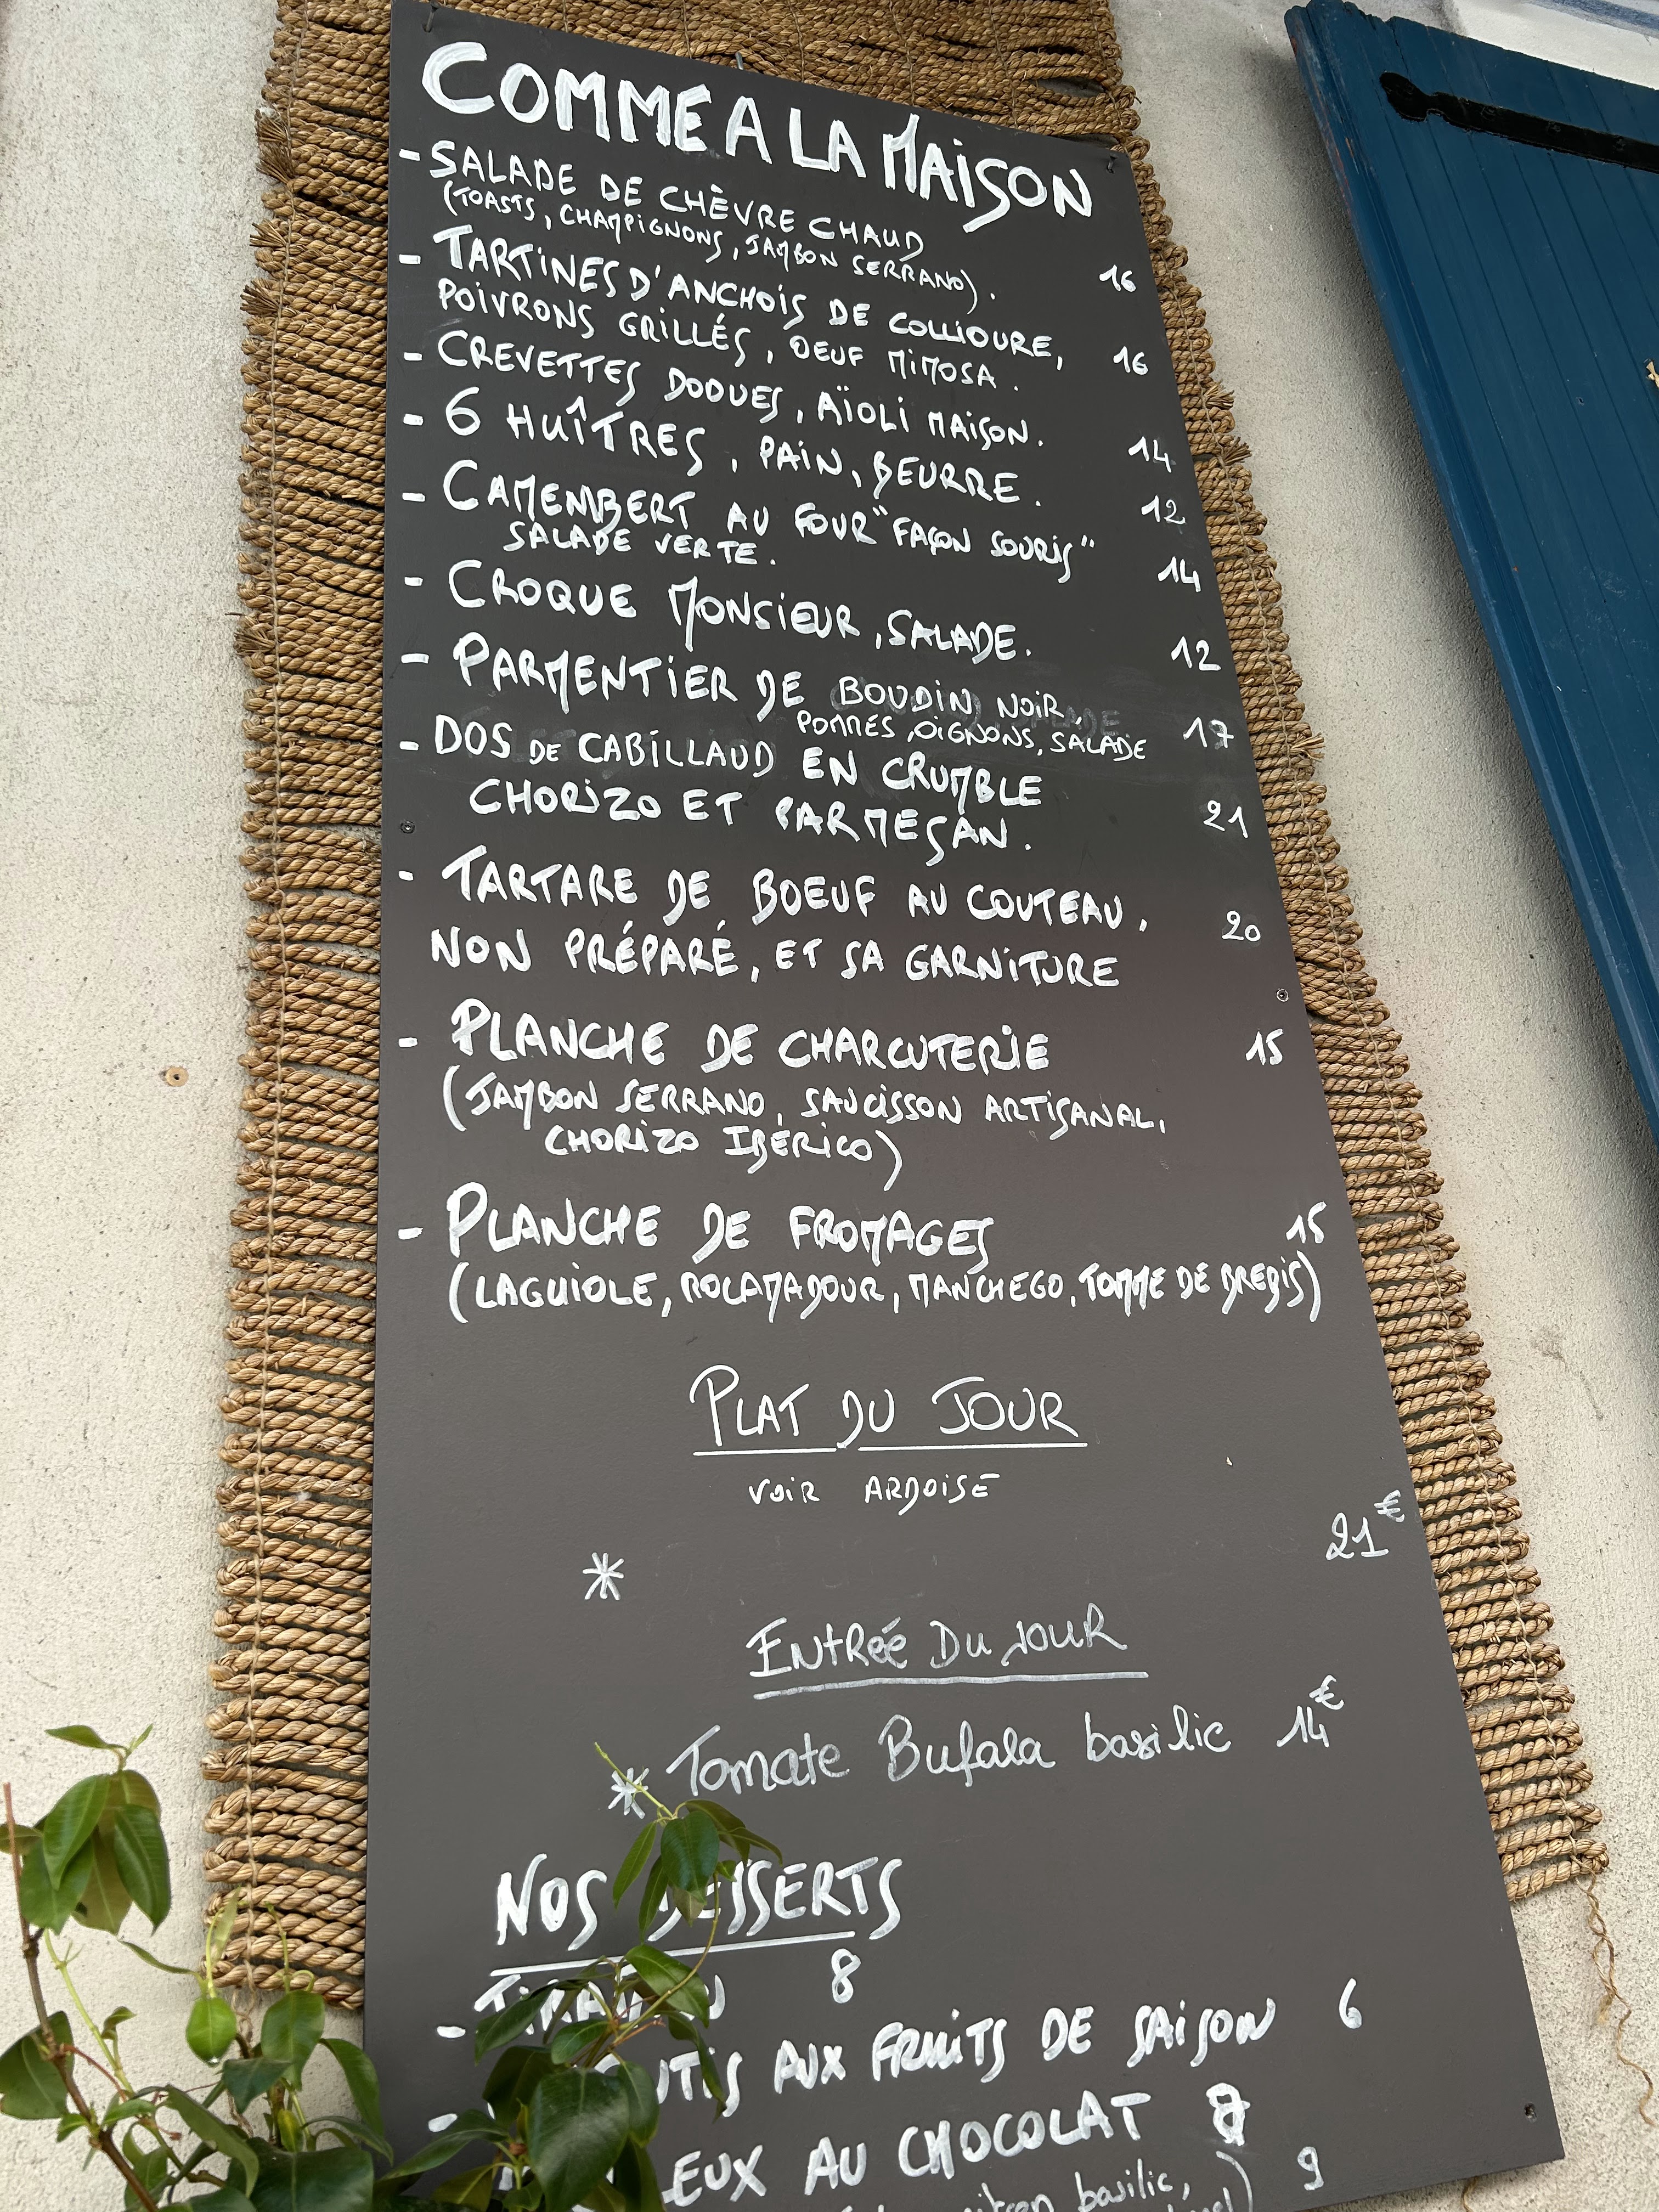 COMME A LA MAISON
- SALADE DE CHÈVRE CHAUD
(TOASTS, CHAMPIGNONS, JAMBON SERRANO). 16
- TARTINES D'ANCHOIS DE COLLIOURE,
POIVRONS GRILLÉS, OEUF MIMOSA. 16
- CREVETTES DODUES, AÏOLI MAISON. 14
- 6 HUÎTRES, PAIN, BEURRE. 12
- CAMEMBERT AU FOUR "FAÇON SOURIS"
SALADE VERTE. 14
- CROQUE MONSIEUR, SALADE. 12
- PARMENTIER DE BOUDIN NOIR,
POMMES, OIGNONS, SALADE 17
- DOS DE CABILLAUD EN CRUMBLE
CHORIZO ET PARMESAN. 21
- TARTARE DE BOEUF AU COUTEAU, 20
NON PRÉPARÉ, ET SA GARNITURE
- PLANCHE DE CHARCUTERIE 15
(JAMBON SERRANO, SAUCISSON ARTISANAL,
CHORIZO IBÉRICO)
- PLANCHE DE FROMAGES 15
(LAGUIOLE, ROCAMADOUR, MANCHEGO, TOMME DE BREBIS)
PLAT DU JOUR
VOIR ARDOISE
* 21€
ENTRÉE DU JOUR
* Tomate Bufala basilic 14€
NOS DESSERTS
- 8
- AUX FRUITS DE SAISON 6
AU CHOCOLAT
basilic, 9